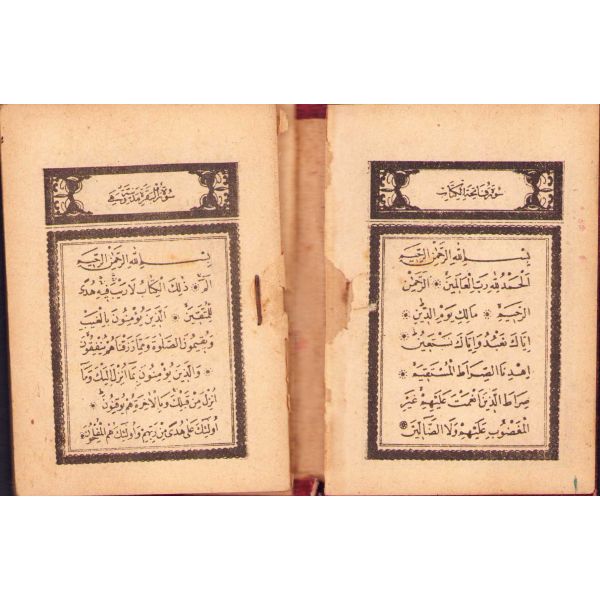 سورة فاتحة الكتاب
بسم الله الرحمن الرحيم
الحمد لله رب العالمين الرحمن
الرحيم مالك يوم الدين
اياك نعبد واياك نستعين
اهدنا الصراط المستقيم
صراط الذين انعمت عليهم غير
المغضوب عليهم ولا الضالين
سورة البقرة مدنية وهي
بسم الله الرحمن الرحيم
الم ذلك الكتاب لا ريب فيه هدى
للمتقين الذين يؤمنون بالغيب
ويقيمون الصلوة ومما رزقناهم ينفقون
والذين يؤمنون بما انزل اليك وما
انزل من قبلك وبالاخرة هم يوقنون
اولئك على هدى من ربهم واولئك هم المفلحون